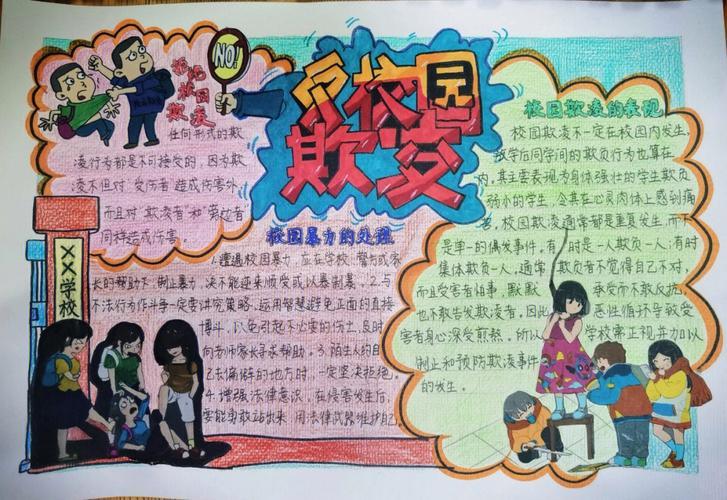 反校园
欺凌
NO!
拒绝
校园
欺凌
任何形式的欺
凌行为都是不可接受的，因为欺
凌不但对“受伤者”造成伤害外，
而且对“欺凌者”和“旁边者”
同样造成伤害。
XX学校
校园暴力的处理
1.遭遇校园暴力，应在学校、警方或家
长的帮助下，制止暴力，决不能逆来顺受或以暴制暴。2.与
不法行为作斗争一定要讲究策略，运用智慧避免正面的直接
搏斗，以免引起不必要的伤亡，及时
向老师家长寻求帮助。3.陌生人约自
己去偏僻的地方时一定坚决拒绝。
4.增强法律意识，在侵害发生后，
要能勇敢站出来，用法律武器维护自己。
校园欺凌的表现
校园欺凌不一定在校园内发生，
放学后同学间的欺负行为也算在
内。其主要表现为身体强壮的学生欺负
弱小的学生，令其在心灵肉体上感到痛
苦，校园欺凌通常都是重复发生，而不
是单一的偶发事件。有时是一人欺负一人，有时
集体欺负一人，通常欺负者不觉得自己不对，
而且受害者怕事，默默承受而不敢反抗，
也不敢告发欺凌者，因此恶性循环导致受
害者身心深受煎熬。所以学校需正视并加以
制止和预防欺凌事件
的发生。